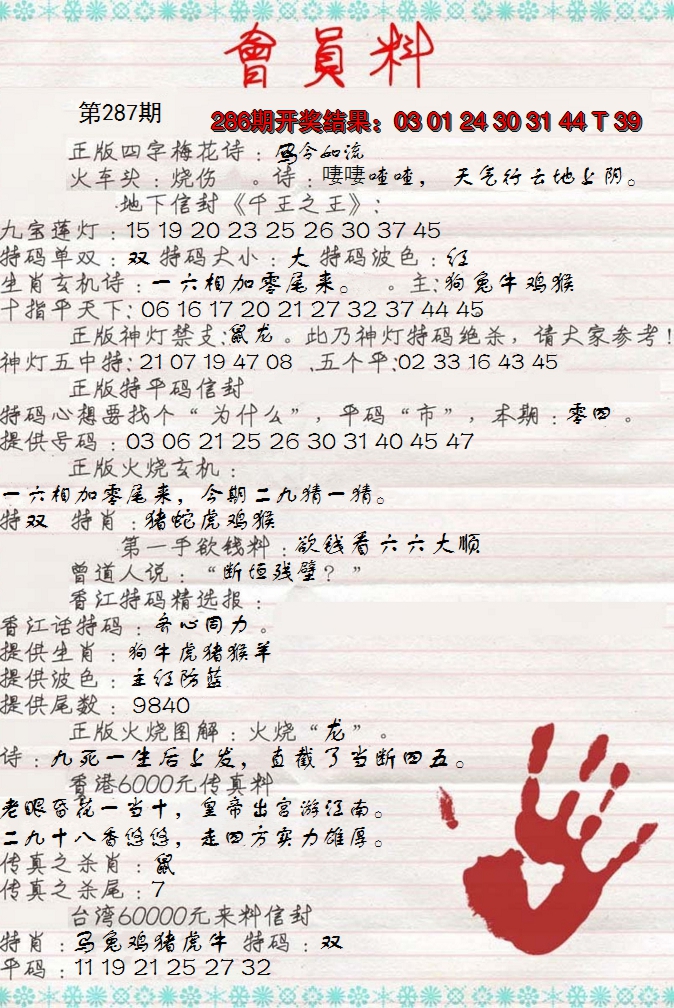 會員料
第287期
286期开奖结果：03 01 24 30 31 44 T 39
正版四字梅花诗：马令如流
火车头：烧伤　。诗：啛啛喳喳，天气行云地上阴。
地下信封《千王之王》：
九宝莲灯：15 19 20 23 25 26 30 37 45
特码单双：双 特码大小：大 特码波色：红
生肖玄机诗：一六相加零尾来。　。主：狗兔牛鸡猴
十指平天下：06 16 17 20 21 27 32 37 44 45
正版神灯禁支：鼠龙。此乃神灯特码绝杀，请大家参考！
神灯五中特：21 07 19 47 08　、五个平：02 33 16 43 45
正版特平码信封
特码心想要找个“为什么”，平码“市”，本期：零四。
提供号码：03 06 21 25 26 30 31 40 45 47
正版火烧玄机：
一六相加零尾来，今期二九猜一猜。
特双　特肖：猪蛇虎鸡猴
第一手欲钱料：欲钱看六六大顺
曾道人说：“断垣残壁？”
香江特码精选报：
香江话特码：齐心同力。
提供生肖：狗牛虎猪猴羊
提供波色：主红防蓝
提供尾数：9840
正版火烧图解：火烧“龙”。
诗：九死一生后上发，直截了当断四五。
香港6000元传真料
老眼昏花一当十，皇帝出宫游江南。
二九十八香悠悠，走四方实力雄厚。
传真之杀肖：鼠
传真之杀尾：7
台湾60000元来料信封
特肖：马兔鸡猪虎牛 特码：双
平码：11 19 21 25 27 32